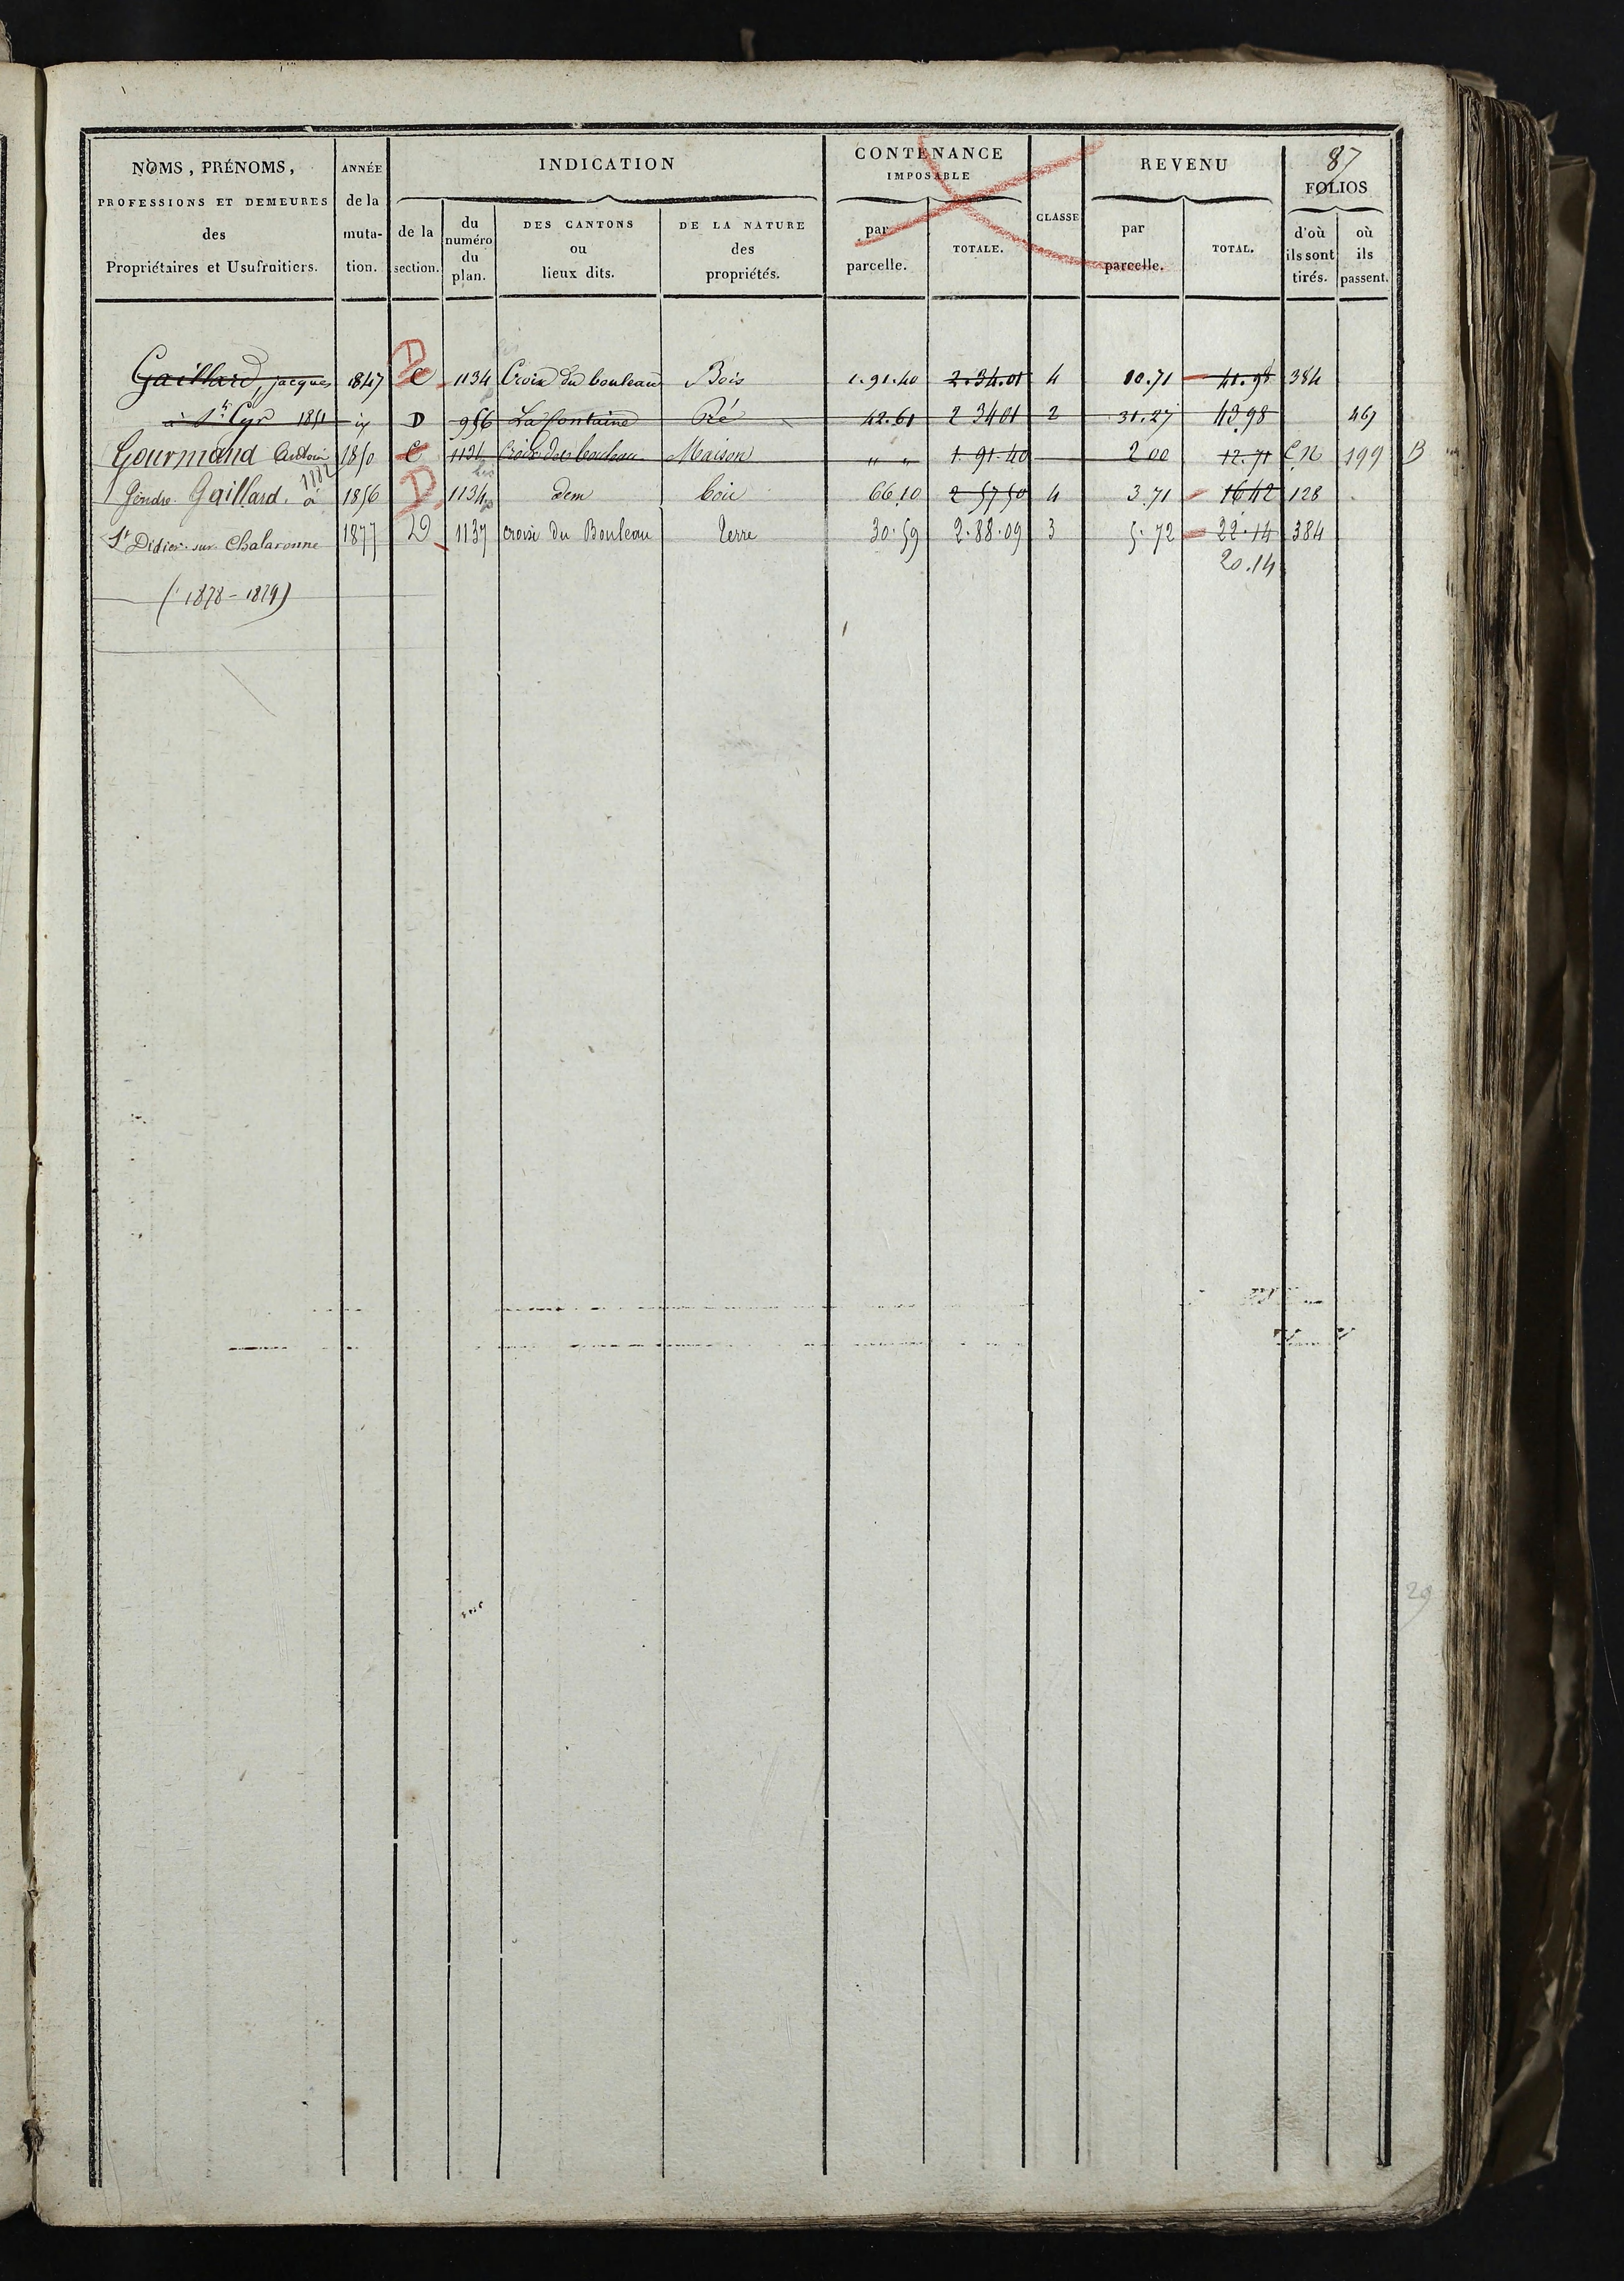 87
NOMS, PRÉNOMS,
PROFESSIONS ET DEMEURES
des
Propriétaires et Usufruitiers.
ANNÉE
de la
muta-
tion.
INDICATION
de la
section.
du
numéro
du
plan.
DES CANTONS
ou
lieux dits.
DE LA NATURE
des
propriétés.
CONTENANCE
IMPOSABLE
par
parcelle.
TOTALE.
CLASSE
REVENU
par
parcelle.
TOTAL.
FOLIOS
d'où
ils sont
tirés.
où
ils
passent.
Gaillard, jacques 1847 C 1134 Croix du bouleau Bois 1.91.40 2.34.01 4 10.71 41.98 384
à St Cyr 1851 D 956 La fontaine Pré 42.61 2 34 01 2 31.27 43.98 467
Gourmand 1850 C 1134 Croix du bouleau Maison " " 1.91.40 2 00 12.71 C N 199 B
1882
bis
Gendre Gaillard. à 1856 D 1134 p dem bois 66 10 2 57 50 4 3.71 16 42 128
St Didier sur Chalaronne 1877 D 1137 croix du Bouleau terre 30.59 2.88.09 3 5.72 22.14 384
20.14
(1878-1879)
29